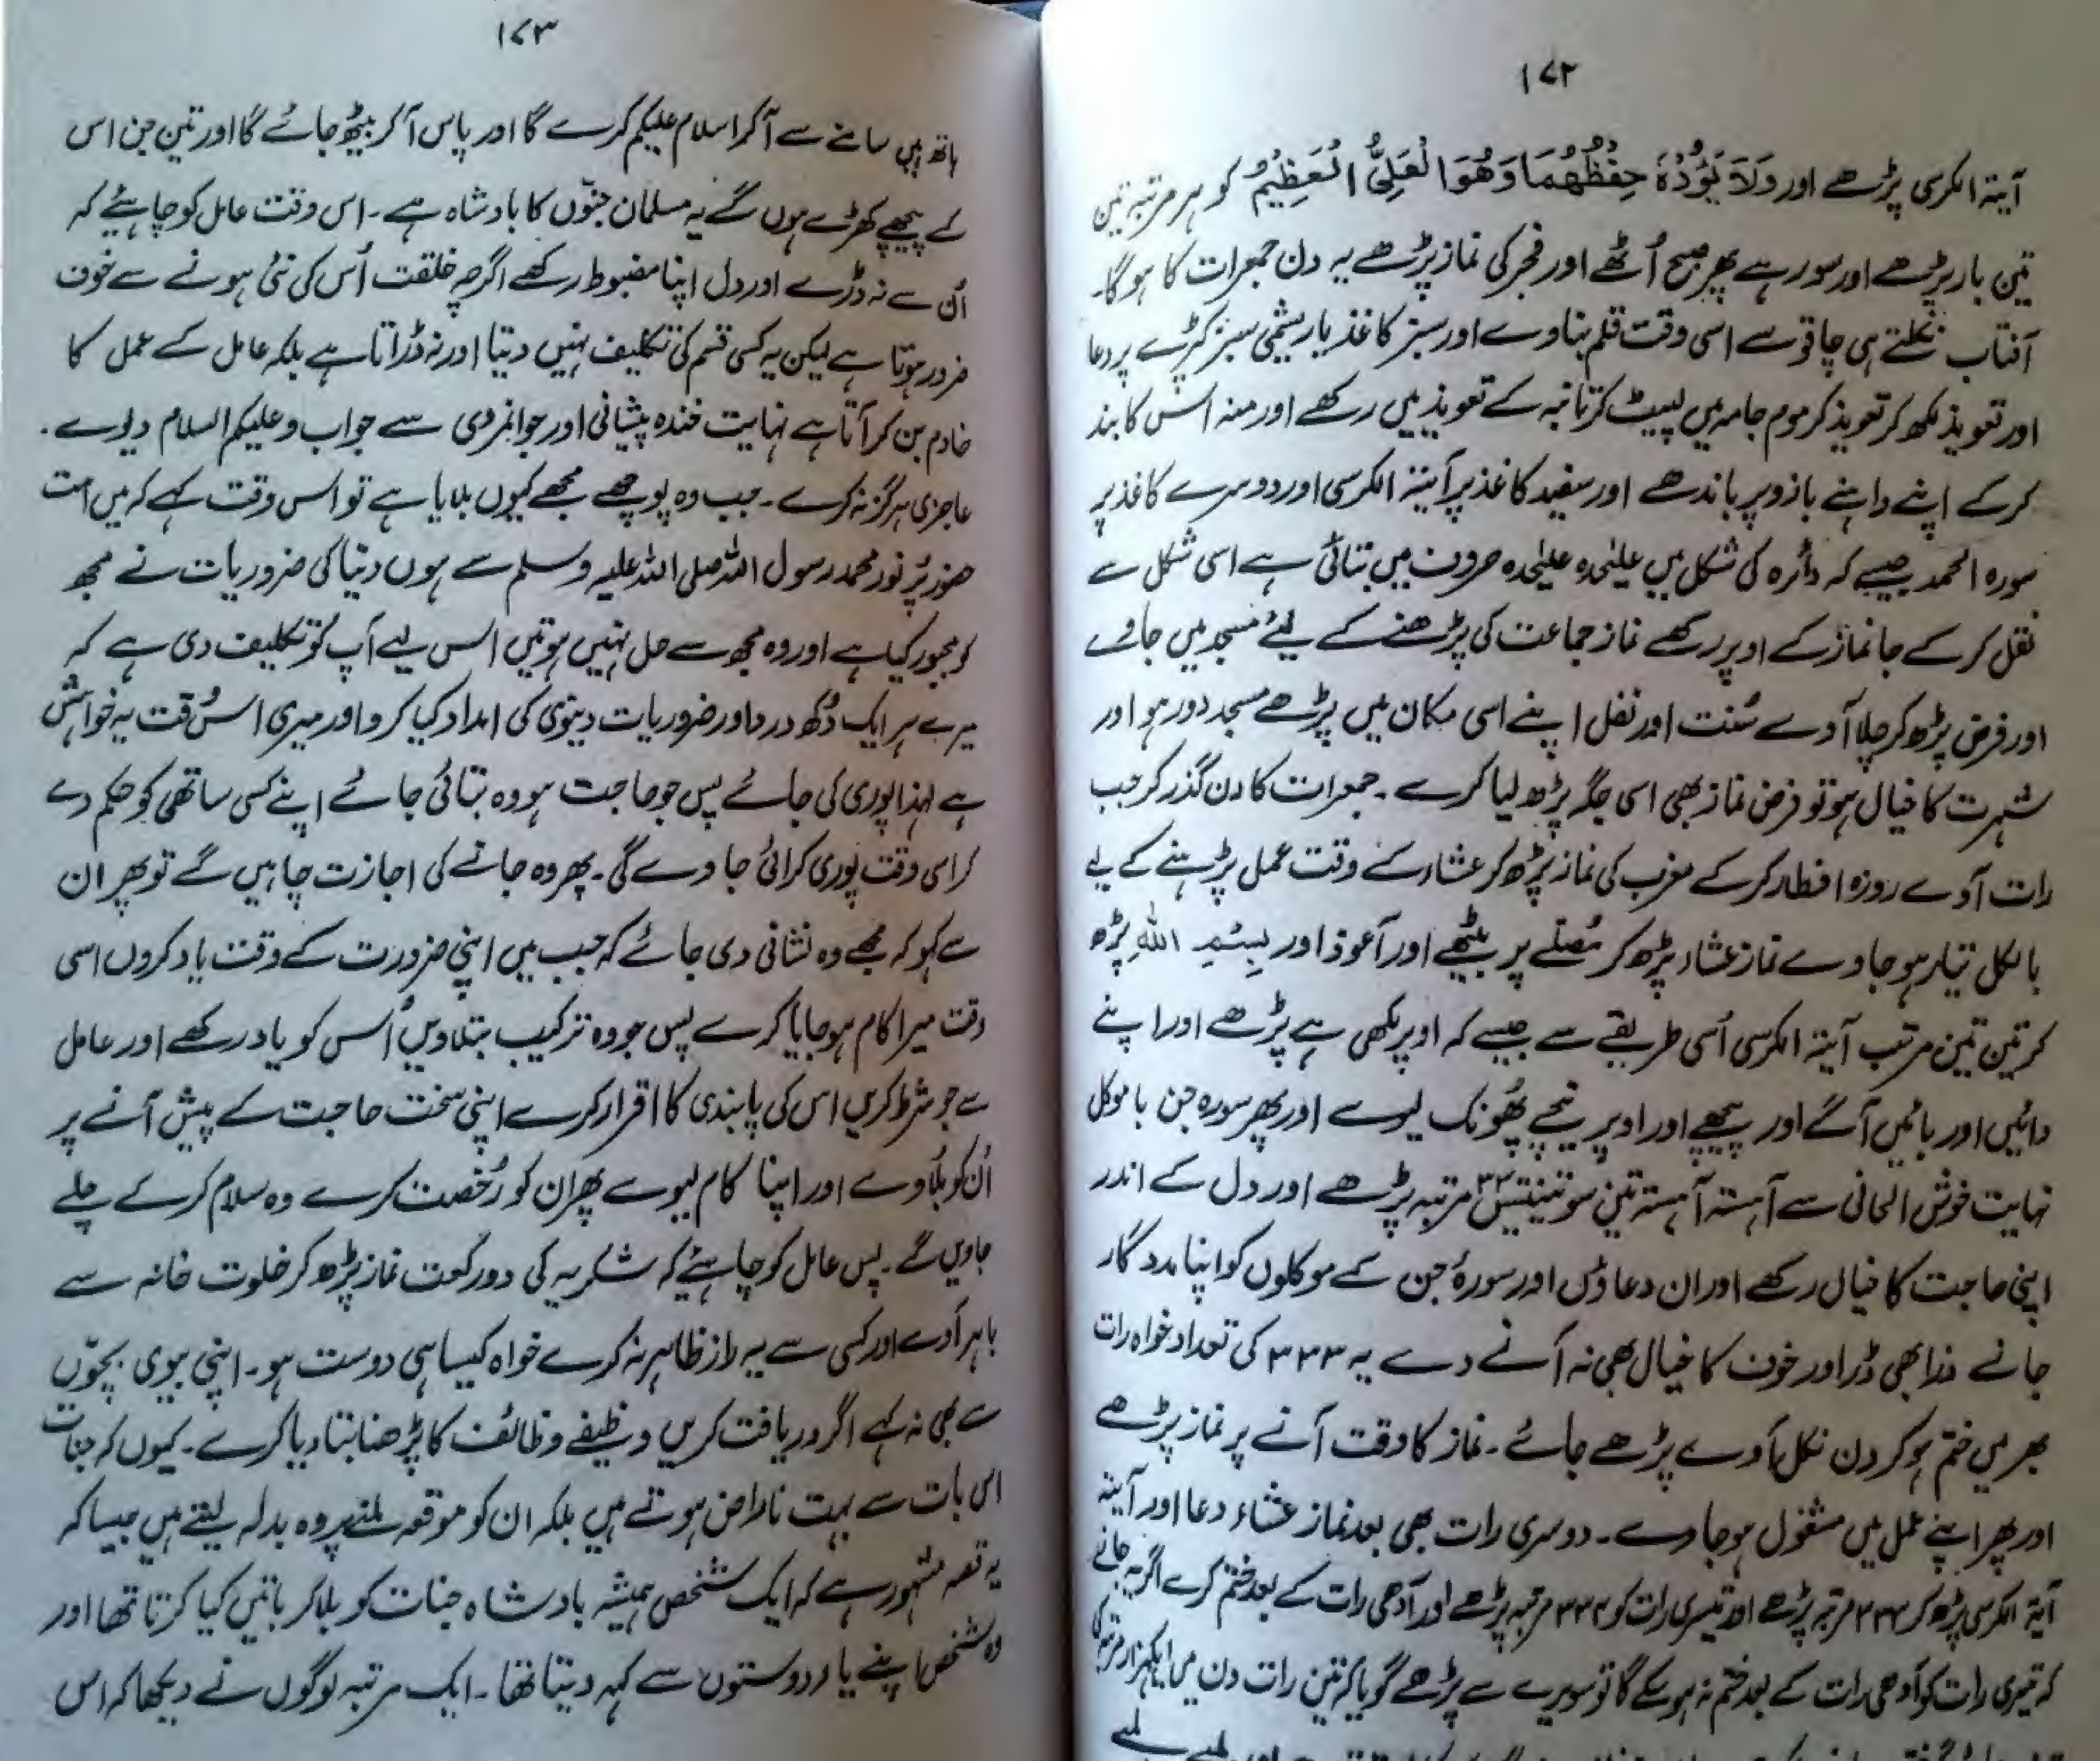 ۱۷۲
آیۃ الکرسی پڑھے اور وَلَا یَؤُدُہٗ حِفْظُہُمَا وَھُوَا لْعَلِیُّ الْعَظِیْمُ کو ہر مرتبہ تین
تین بار پڑھے اور سو رہے پھر صبح اُٹھے اور فجر کی نماز پڑھے یہ دن جمعرات کا ہوگا۔
آفتاب نکلتے ہی چاقو سے اسی وقت قلم بناوے اور سبز کاغذ یا ریشمی سبز کپڑے پر دعا
اور تعویذ لکھ کر تعویذ کر موم جامہ میں لپیٹ کر تانبہ کے تعویذ میں رکھے اور منہ اس کا بند
کرکے اپنے داہنے بازو پر باندھے اور سفید کاغذ پر آیۃ الکرسی اور دوسرے کاغذ پر
سورہ الحمد جیسے کہ دائرہ کی شکل میں علیٰحدہ علیٰحدہ حروف میں بتائی ہے اسی شکل سے
نقل کرکے جانماز کے اوپر رکھے نماز جماعت کی پڑھنے کے لیئے مسجد میں جاوے
اور فرض پڑھ کر چلا آوے سُنت اور نفل اپنے اسی مکان میں پڑھے مسجد دور ہو اور
شہرت کا خیال ہو تو فرض نماز بھی اسی جگہ پڑھ لیا کرے۔ جمعرات کا دن گذر کر جب
رات آوے روزہ افطار کرکے مغرب کی نماز پڑھ کر عشاء کے وقت عمل پڑہنے کے لیے
بالکل تیار ہو جاوے نماز عشاء پڑھ کر مُصلے پر بیٹھے اور اَعوذ اور بِسْمِ اللہِ پڑھ
کر تین تین مرتبہ آیۃ الکرسی اُسی طریقے سے جیسے کہ اوپر لکھی ہے پڑھے اور اپنے
دائیں اور بائیں آگے اور پیچھے اور اوپر نیچے پُھونک لیوے اور پھر سورہ جن با موکل
نہایت خوش الحانی سے آہستہ آہستہ تین سو تینتیس ۳۳۳ مرتبہ پڑھے اور دل کے اندر
اپنی حاجت کا خیال رکھے اور ان دعاؤں اور سورۂ جن کے موکلوں کو اپنا مددگار
جانے ذرا بھی ڈر اور خوف کا خیال بھی نہ آنے دے یہ ۳۳۳ کی تعداد خواہ رات
بھر میں ختم ہو کر دن نکل آوے پڑھے جائے۔ نماز کا وقت آنے پر نماز پڑھے
اور پھر اپنے عمل میں مشغول ہو جاوے۔ دوسری رات بھی بعد نماز عشاء دعا اور آیتہ
آیۃ الکرسی پڑھ کر ۳۳۳ مرتبہ پڑھے اور تیسری رات کو ۳۳۴ مرتبہ پڑھے اور آدھی رات کے بعد ختم کرے اگر یہ جانے
کہ تیسری رات کو آدھی رات کے بعد ختم نہ ہوسکے گا تو سویرے سے پڑھے گویا کہ تین رات دن میں ایکہزار مرتبہ کی
۱۷۳
ہاتھ میں سامنے سے آکر اسلام علیکم کرے گا اور پاس آکر بیٹھ جائے گا اور تین جن اس
کے پیچھے کھڑے ہوں گے یہ مسلمان جنّوں کا بادشاہ ہے۔ اس وقت عامل کو چاہئیے کہ
اُن سے نہ ڈرے اور دل اپنا مضبوط رکھے اگرچہ خلقت اُس کی نئی ہونے سے خوف
ضرور ہوتا ہے لیکن یہ کسی قسم کی تکلیف نہیں دیتا اور نہ ڈراتا ہے بلکہ عامل کے عمل کا
خادم بن کر آتا ہے نہایت خندہ پیشانی اور جوانمردی سے جواب وعلیکم السلام دیوے۔
عاجزی ہرگز نہ کرے۔ جب وہ پوچھے مجھے کیوں بلایا ہے تو اس وقت کہے کہ میں امت
حضور پُر نور محمد رسول اللہ صلی اللہ علیہ وسلم سے ہوں دنیا کی ضروریات نے مجھ
کو مجبور کیا ہے اور وہ مجھ سے حل نہیں ہوتیں اس لیے آپ کو تکلیف دی ہے کہ
میرے ہر ایک دُکھ درد اور ضروریات دینوی کی امداد کیا کرو اور میری اس وقت یہ خواہش
ہے لہٰذا پوری کی جائے پس جو حاجت ہو وہ بتائی جائے اپنے کسی ساتھی کو حکم دے
کر اسی وقت پوری کرائی جاوے گی۔ پھر وہ جانے کی اجازت چاہیں گے تو پھر ان
سے کہو کہ مجھے وہ نشانی دی جائے کہ جب میں اپنی ضرورت کے وقت یاد کروں اسی
وقت میرا کام ہو جایا کرے پس جو وہ ترکیب بتلاویں اُس کو یاد رکھے اور عامل
سے جو شرط کریں اس کی پابندی کا اقرار کرے اپنی سخت حاجت کے پیش آنے پر
اُن کو بُلاوے اور اپنا کام لیوے پھر ان کو رُخصت کرے وہ سلام کرکے چلے
جاویں گے۔ پس عامل کو چاہیئے کہ شکریہ کی دو رکعت نماز پڑھ کر خلوت خانہ سے
باہر آوے اور کسی سے یہ راز ظاہر نہ کرے خواہ کیسا ہی دوست ہو۔ اپنی بیوی بچوّں
سے بھی نہ کہے اگر دریافت کریں وظیفے وظائف کا پڑھنا بتا دیا کرے۔ کیوں کہ جنات
اس بات سے بہت ناراض ہوتے ہیں بلکہ ان کو موقعہ ملنے پر وہ بدلہ لیتے ہیں جیسا کہ
یہ قصہ مشہور ہے کہ ایک شخص ہمیشہ بادشاہ جنات کو بلا کر باتیں کیا کرتا تھا اور
وہ شخص اپنے یار دوستوں سے کہہ دیتا تھا۔ ایک مرتبہ لوگوں نے دیکھا کہ اس